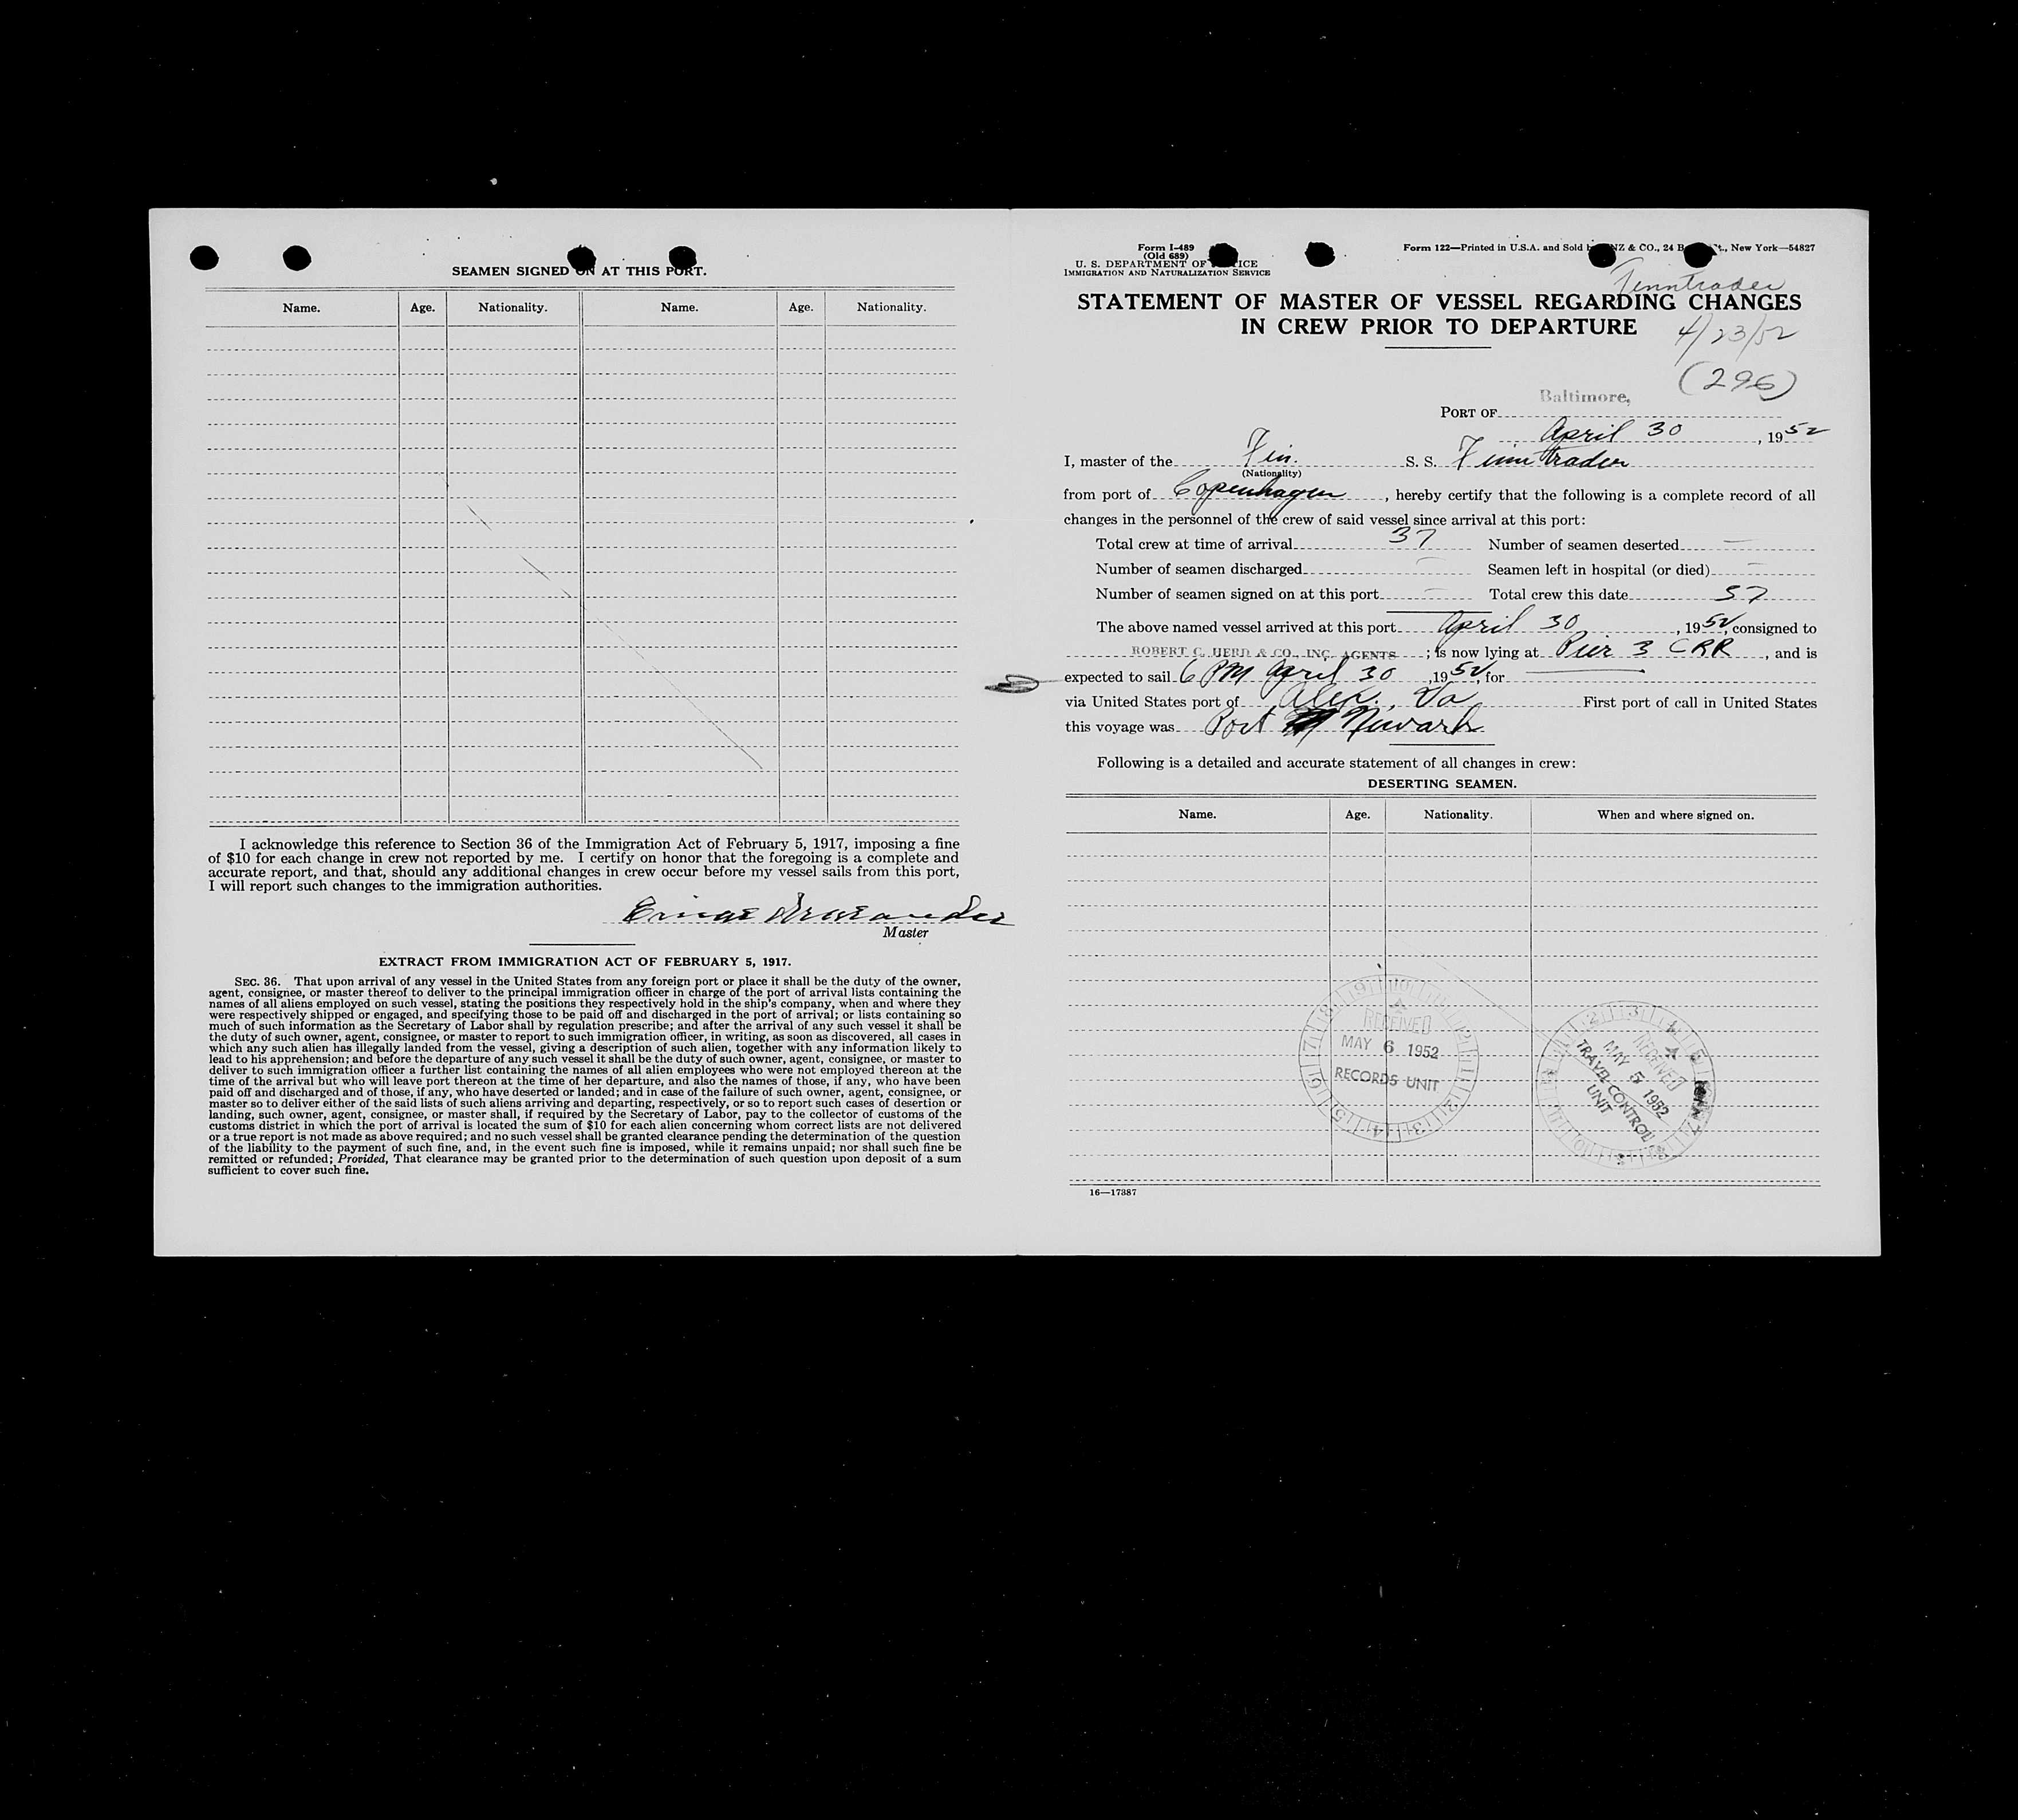 SEAMEN SIGNED ON AT THIS PORT.
Name. Age. Nationality. Name. Age. Nationality.
I acknowledge this reference to Section 36 of the Immigration Act of February 5, 1917, imposing a fine
of $10 for each change in crew not reported by me. I certify on honor that the foregoing is a complete and
accurate report, and that, should any additional changes in crew occur before my vessel sails from this port,
I will report such changes to the immigration authorities.
Master
EXTRACT FROM IMMIGRATION ACT OF FEBRUARY 5, 1917.
SEC. 36. That upon arrival of any vessel in the United States from any foreign port or place it shall be the duty of the owner,
agent, consignee, or master thereof to deliver to the principal immigration officer in charge of the port of arrival lists containing the
names of all aliens employed on such vessel, stating the positions they respectively hold in the ship's company, when and where they
were respectively shipped or engaged, and specifying those to be paid off and discharged in the port of arrival; or lists containing so
much of such information as the Secretary of Labor shall by regulation prescribe; and after the arrival of any such vessel it shall be
the duty of such owner, agent, consignee, or master to report to such immigration officer, in writing, as soon as discovered, all cases in
which any such alien has illegally landed from the vessel, giving a description of such alien, together with any information likely to
lead to his apprehension; and before the departure of any such vessel it shall be the duty of such owner, agent, consignee, or master to
deliver to such immigration officer a further list containing the names of all alien employees who were not employed thereon at the
time of the arrival but who will leave port thereon at the time of her departure, and also the names of those, if any, who have been
paid off and discharged and of those, if any, who have deserted or landed; and in case of the failure of such owner, agent, consignee, or
master so to deliver either of the said lists of such aliens arriving and departing, respectively, or so to report such cases of desertion or
landing, such owner, agent, consignee, or master shall, if required by the Secretary of Labor, pay to the collector of customs of the
customs district in which the port of arrival is located the sum of $10 for each alien concerning whom correct lists are not delivered
or a true report is not made as above required; and no such vessel shall be granted clearance pending the determination of the question
of the liability to the payment of such fine, and, in the event such fine is imposed, while it remains unpaid; nor shall such fine be
remitted or refunded; Provided, That clearance may be granted prior to the determination of such question upon deposit of a sum
sufficient to cover such fine.
Form I-489
(Old 689)
U. S. DEPARTMENT OF JUSTICE
IMMIGRATION AND NATURALIZATION SERVICE
Form 122—Printed in U.S.A. and Sold & CO., 24 New York—54827
Finntrader
STATEMENT OF MASTER OF VESSEL REGARDING CHANGES
IN CREW PRIOR TO DEPARTURE
4/23/52
(296)
PORT OF Baltimore,
April 30, 1952
I, master of the Fin. S. S. Finntrader
(Nationality)
from port of Copenhagen, hereby certify that the following is a complete record of all
changes in the personnel of the crew of said vessel since arrival at this port:
Total crew at time of arrival 37 Number of seamen deserted —
Number of seamen discharged — Seamen left in hospital (or died) —
Number of seamen signed on at this port — Total crew this date 37
The above named vessel arrived at this port April 30, 1952, consigned to
ROBERT C. HERD & CO., INC. AGENTS; is now lying at Pier 3 CRR, and is
expected to sail 6 PM April 30, 1952, for
via United States port of Alex., Va First port of call in United States
this voyage was Port Newark
Following is a detailed and accurate statement of all changes in crew:
DESERTING SEAMEN.
Name. Age. Nationality. When and where signed on.
RECEIVED
MAY 6 1952
RECORDS UNIT
RECEIVED
MAY 5 1952
TRAVEL CONTROL
UNIT
16—17387